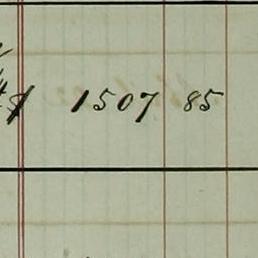 $ 1507 85